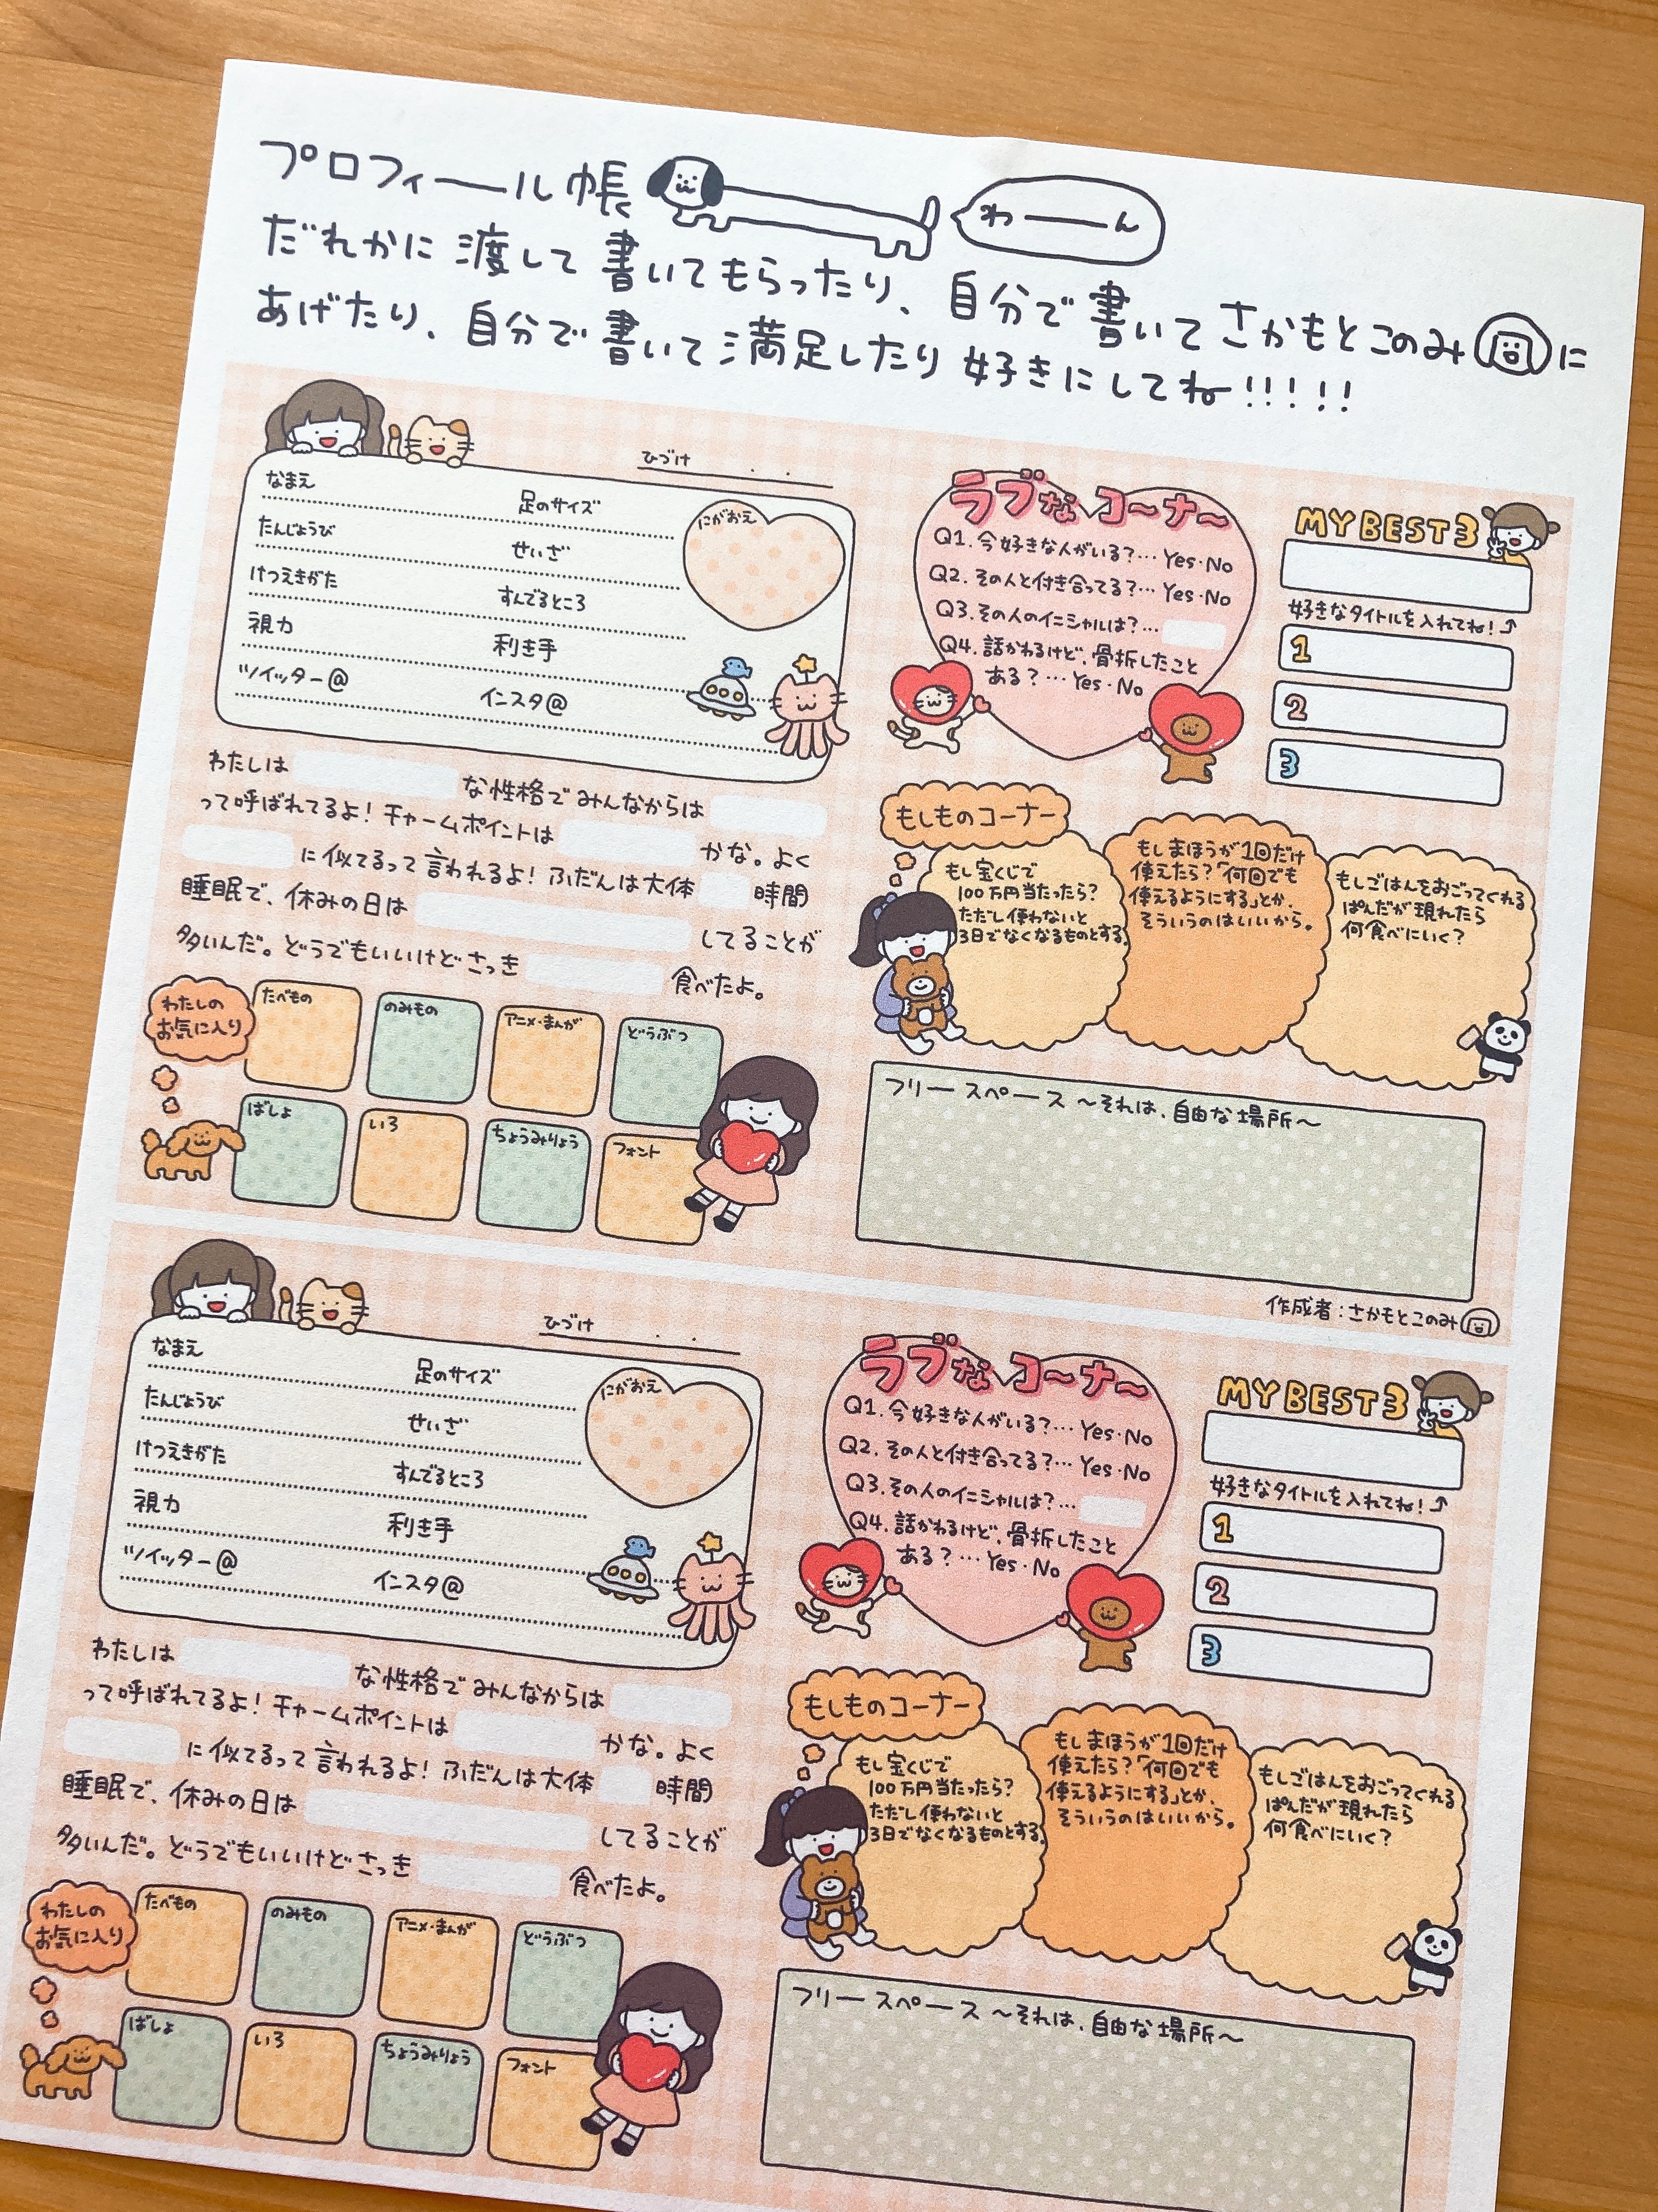 プロフィール帳
わーん
だれかに渡して書いてもらったり、自分で書いてさかもとこのみに
あげたり、自分で書いて満足したり好きにしてね!!!!!
ひづけ . .
なまえ
足のサイズ
たんじょうび
せいざ
けつえきがた
すんでるところ
視力
利き手
ツイッター@
インスタ@
にがおえ
わたしは な性格でみんなからは
って呼ばれてるよ!チャームポイントは かな。よく
に似てるって言われるよ!ふだんは大体 時間
睡眠で、休みの日は してることが
多いんだ。どうでもいいけどさっき 食べたよ。
わたしの
お気に入り
たべもの
のみもの
アニメ・まんが
どうぶつ
ばしょ
いろ
ちょうみりょう
フォント
ラブなコーナー
Q1.今好きな人がいる?…Yes・No
Q2.その人と付き合ってる?…Yes・No
Q3.その人のイニシャルは?…
Q4.話かわるけど、骨折したこと
ある?…Yes・No
MY BEST 3
好きなタイトルを入れてね!
1
2
3
もしものコーナー
もし宝くじで
100万円当たったら?
ただし使わないと
3日でなくなるものとする。
もしまほうが1回だけ
使えたら?「何回でも
使えるようにする」とか、
そういうのはいいから。
もしごはんをおごってくれる
ぱんだが現れたら
何食べにいく?
フリースペース ～それは、自由な場所～
作成者:さかもとこのみ
ひづけ . .
なまえ
足のサイズ
たんじょうび
せいざ
けつえきがた
すんでるところ
視力
利き手
ツイッター@
インスタ@
にがおえ
わたしは な性格でみんなからは
って呼ばれてるよ!チャームポイントは かな。よく
に似てるって言われるよ!ふだんは大体 時間
睡眠で、休みの日は してることが
多いんだ。どうでもいいけどさっき 食べたよ。
わたしの
お気に入り
たべもの
のみもの
アニメ・まんが
どうぶつ
ばしょ
いろ
ちょうみりょう
フォント
ラブなコーナー
Q1.今好きな人がいる?…Yes・No
Q2.その人と付き合ってる?…Yes・No
Q3.その人のイニシャルは?…
Q4.話かわるけど、骨折したこと
ある?…Yes・No
MY BEST 3
好きなタイトルを入れてね!
1
2
3
もしものコーナー
もし宝くじで
100万円当たったら?
ただし使わないと
3日でなくなるものとする。
もしまほうが1回だけ
使えたら?「何回でも
使えるようにする」とか、
そういうのはいいから。
もしごはんをおごってくれる
ぱんだが現れたら
何食べにいく?
フリースペース ～それは、自由な場所～